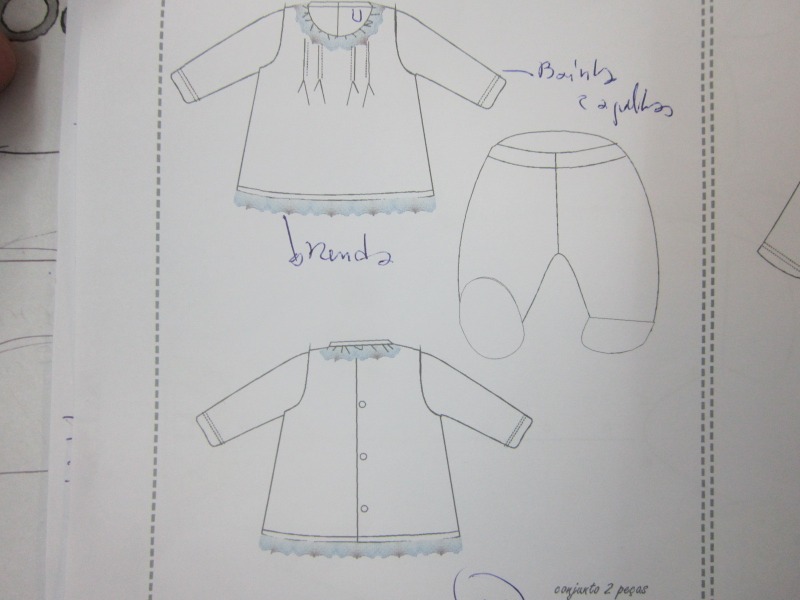 U
Bainha
2 agulhas
Renda
conjunto 2 peças